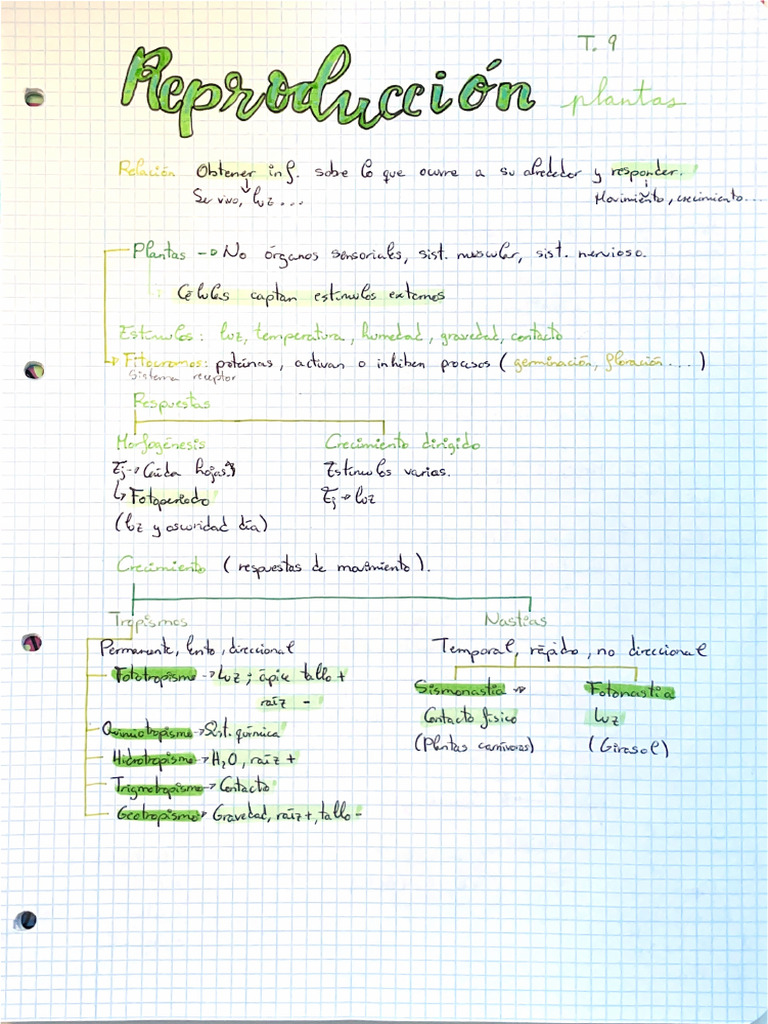 T. 9
Reproducción plantas
Relación Obtener inf. sobre lo que ocurre a su alrededor y responder.
Ser vivo, luz ... Movimiento, crecimiento...
Plantas → No órganos sensoriales, sist. muscular, sist. nervioso.
Células captan estímulos externos
Estímulos: luz, temperatura, humedad, gravedad, contacto
Fitocromos: proteínas, activan o inhiben procesos (germinación, floración...)
Sistema receptor
Respuestas
Morfogénesis Crecimiento dirigido
Ej → Caída hojas Estímulos varias.
↳ Fotoperiodo Ej → luz
(luz y oscuridad día)
Crecimiento (respuestas de movimiento).
Tropismos Nastias
Permanente, lento, direccional Temporal, rápido, no direccional
Fototropismo → Luz; ápice tallo + Sismonastia → Fotonastia
raíz - Contacto físico Luz
Quimiotropismo → Sist. química (Plantas carnívoras) (Girasol)
Hidrotropismo → H₂O, raíz +
Trigmotropismo → Contacto
Geotropismo → Gravedad, raíz +, tallo -